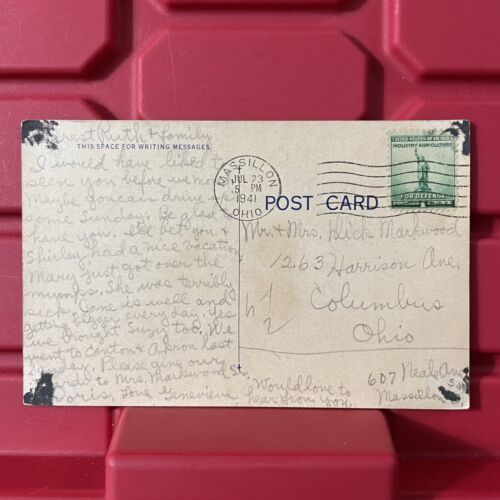 Dearest Ruth & family
THIS SPACE FOR WRITING MESSAGES.
I would have liked to
seen you before we mov
Maybe you can drive
some Sunday. Be glad
have you. I'll bet you &
Shirley had a nice vacation
Mary just got over the
mumps. She was terribly
sick. Jane is well and
getting bigger every day. Yes
we brought Suzy too. We
went to Canton & Akron last
Please give our
to Mrs. Markwood &
Doris. Love Genevieve
Would love to
hear from you.
MASSILLON
JUL 23
5 PM
1941
OHIO
POST CARD
UNITED STATES OF AMERICA
INDUSTRY AGRICULTURE
FOR DEFENSE
1 CENT
Mr. & Mrs. Dick Markwood
1263 Harrison Ave.
Columbus
Ohio
h 1/2
607 Neale Ave
S.W.
Massillon